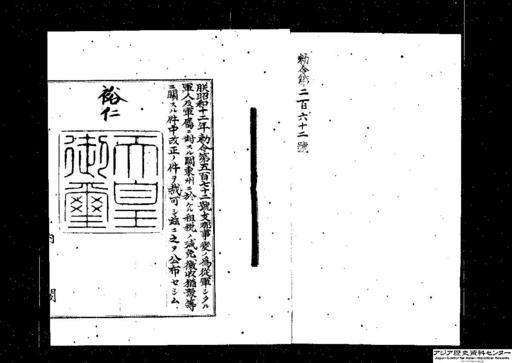 勅令第二百六十二號
朕昭和十二年勅令第五百七十二號支那事變ノ為從軍シタル
軍人及軍屬ニ對スル關東州ニ於ケル租税ノ減免徴收猶豫等
ニ關スル件中改正ノ件ヲ裁可シ茲ニ之ヲ公布セシム
裕仁
天皇御璽
内閣
アジア歴史資料センター
Japan Center for Asian Historical Records